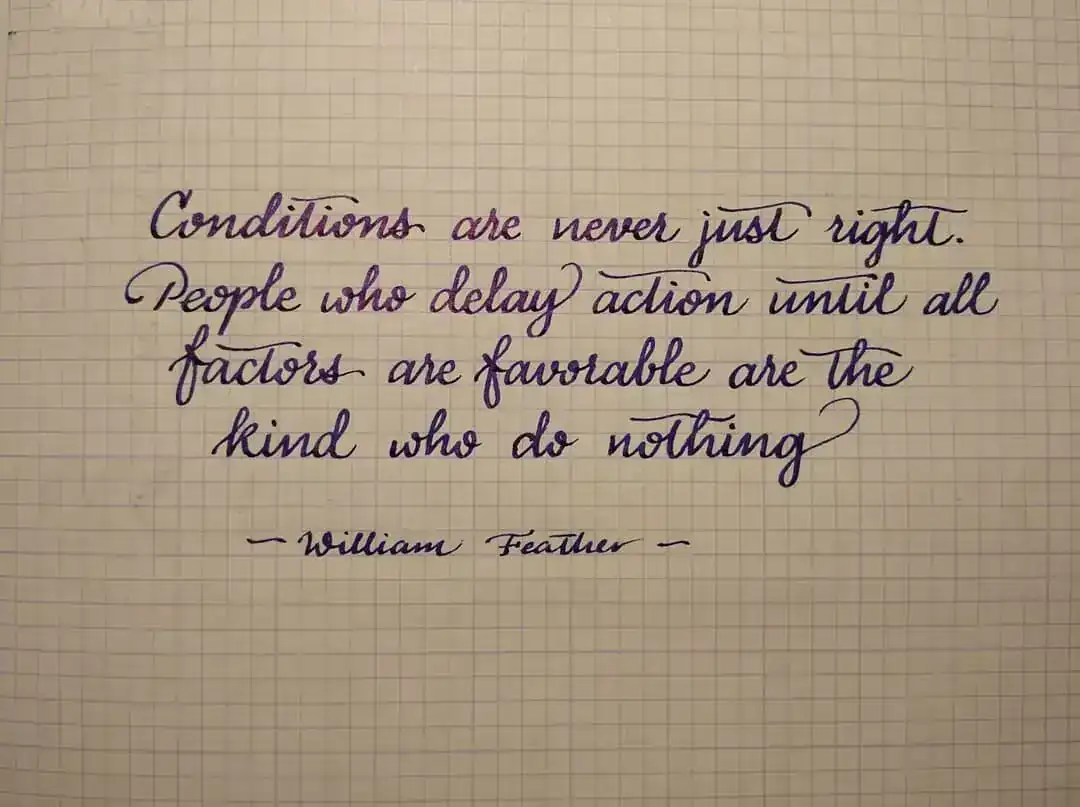 Conditions are never just right.
People who delay action until all
factors are favorable are the
kind who do nothing
— William Feather —